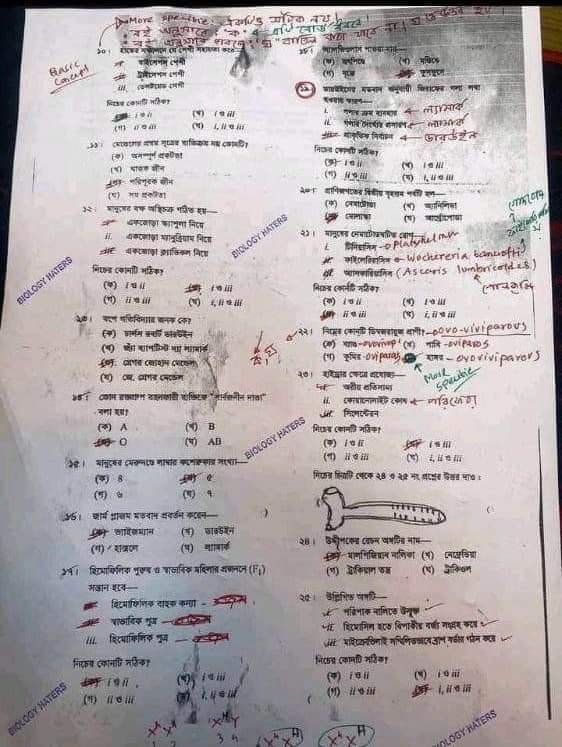 More specific:
Basic concept
১০।
i. বাইসেপস পেশী
ii. ট্রাইসেপস পেশী
iii. ডেল্টয়েড পেশী
নিচের কোনটি সঠিক?
(ক) i ও ii (খ) i ও iii
(গ) ii ও iii (ঘ) i, ii ও iii
১১। মেন্ডেলের প্রথম সূত্রের ব্যতিক্রম নয় কোনটি?
(ক) অসম্পূর্ণ প্রকটতা
(খ) ঘাতক জীন
(গ) পরিপূরক জীন
(ঘ) সম প্রকটতা
১২। মানুষের বক্ষ অস্থিচক্র গঠিত হয়—
i. একজোড়া স্ক্যাপুলা নিয়ে
ii. একজোড়া ম্যানুব্রিয়াম নিয়ে
iii. একজোড়া ক্ল্যাভিকল নিয়ে
নিচের কোনটি সঠিক?
(ক) i ও ii (খ) i ও iii
(গ) ii ও iii (ঘ) i, ii ও iii
১৩। বংশ গতিবিদ্যার জনক কে?
(ক) চার্লস রবার্ট ডারউইন
(খ) জ্যাঁ ব্যাপটিস্ট দ্য ল্যামার্ক
(গ) গ্রেগর জোহান মেন্ডেল
(ঘ) জে. গ্রেগর মেন্ডেল
১৪। কোন রক্তগ্রুপ বহনকারী ব্যক্তিকে "সার্বজনীন দাতা"
বলা হয়?
(ক) A (খ) B
(গ) O (ঘ) AB
১৫। মানুষের মেরুদণ্ডে লাম্বার কশেরুকার সংখ্যা—
(ক) ৪ (খ) ৫
(গ) ৬ (ঘ) ৭
১৬। জার্ম প্লাজম মতবাদ প্রবর্তন করেন—
(ক) ভাইজম্যান (খ) ডারউইন
(গ) হাক্সলে (ঘ) ল্যামার্ক
১৭। হিমোফিলিক পুরুষ ও স্বাভাবিক মহিলার প্রজননে (F₁)
সন্তান হবে—
i. হিমোফিলিক বাহক কন্যা
ii. স্বাভাবিক পুত্র
iii. হিমোফিলিক পুত্র
নিচের কোনটি সঠিক?
(ক) i ও ii (খ) i ও iii
(গ) ii ও iii (ঘ) i, ii ও iii
১৮। অ্যালভিওলাস পাওয়া যায়—
(ক) হৃৎপিণ্ডে (খ) মস্তিষ্কে
(গ) বৃক্কে (ঘ) ফুসফুসে
১৯। ডারউইনের মতবাদ অনুযায়ী জিরাফের গলা লম্বা
হওয়ার কারণ—
i. গলার ক্রম ব্যবহার ল্যামার্ক
ii. গলার দৈর্ঘ্যের প্রসারণ ল্যামার্ক
iii. প্রাকৃতিক নির্বাচন ডারউইন
নিচের কোনটি সঠিক?
(ক) i ও ii (খ) i ও iii
(গ) ii ও iii (ঘ) i, ii ও iii
২০। প্রাণিজগতের দ্বিতীয় বৃহত্তম পর্বটি হল—
(ক) নেমাটোডা (খ) অ্যানিলিডা
(গ) মোলাস্কা (ঘ) আর্থ্রোপোডা
২১। মানুষের নেমাটোডঘটিত রোগ—
i. টিনিয়াসিস Platyhelminth
ii. ফাইলেরিয়াসিস Wuchereria bancrofti
iii. অ্যাসকারিয়াসিস (Ascaris lumbricoides)
গোলকৃমি
নিচের কোনটি সঠিক?
(ক) i ও ii (খ) i ও iii
(গ) ii ও iii (ঘ) i, ii ও iii
২২। নিচের কোনটি ডিমজরায়ুজ প্রাণী? ovo-viviparous
(ক) ব্যাঙ (খ) পাখি oviparous
(গ) কুমির oviparous (ঘ) হাঙ্গর ovoviviparous
More specific
২৩। হাইড্রার ক্ষেত্রে প্রযোজ্য—
i. অরীয় প্রতিসাম্য
ii. কোয়ানোসাইট কোষ পরিফেরা
iii. সিলেন্টেরন
নিচের কোনটি সঠিক?
(ক) i ও ii (খ) i ও iii
(গ) ii ও iii (ঘ) i, ii ও iii
নিচের চিত্রটি থেকে ২৪ ও ২৫ নং প্রশ্নের উত্তর দাও:
২৪। উদ্দীপকের রেচন অঙ্গটির নাম—
(ক) মালপিজিয়ান নালিকা (খ) নেফ্রেডিয়া
(গ) ট্রাকিয়াল তন্ত্র (ঘ) ট্রাকিওল
২৫। উল্লিখিত অঙ্গটি—
i. পরিপাক নালিতে উন্মুক্ত
ii. হিমোসিল হতে বিপাকীয় বর্জ্য সংগ্রহ করে
iii. মাইক্রোভিলাই সম্মিলিতভাবে ব্রাশ বর্ডার গঠন করে
নিচের কোনটি সঠিক?
(ক) i ও ii (খ) i ও iii
(গ) ii ও iii (ঘ) i, ii ও iii
BIOLOGY HATERS
BIOLOGY HATERS
BIOLOGY HATERS
BIOLOGY HATERS
BIOLOGY HATERS
BIOLOGY HATERS